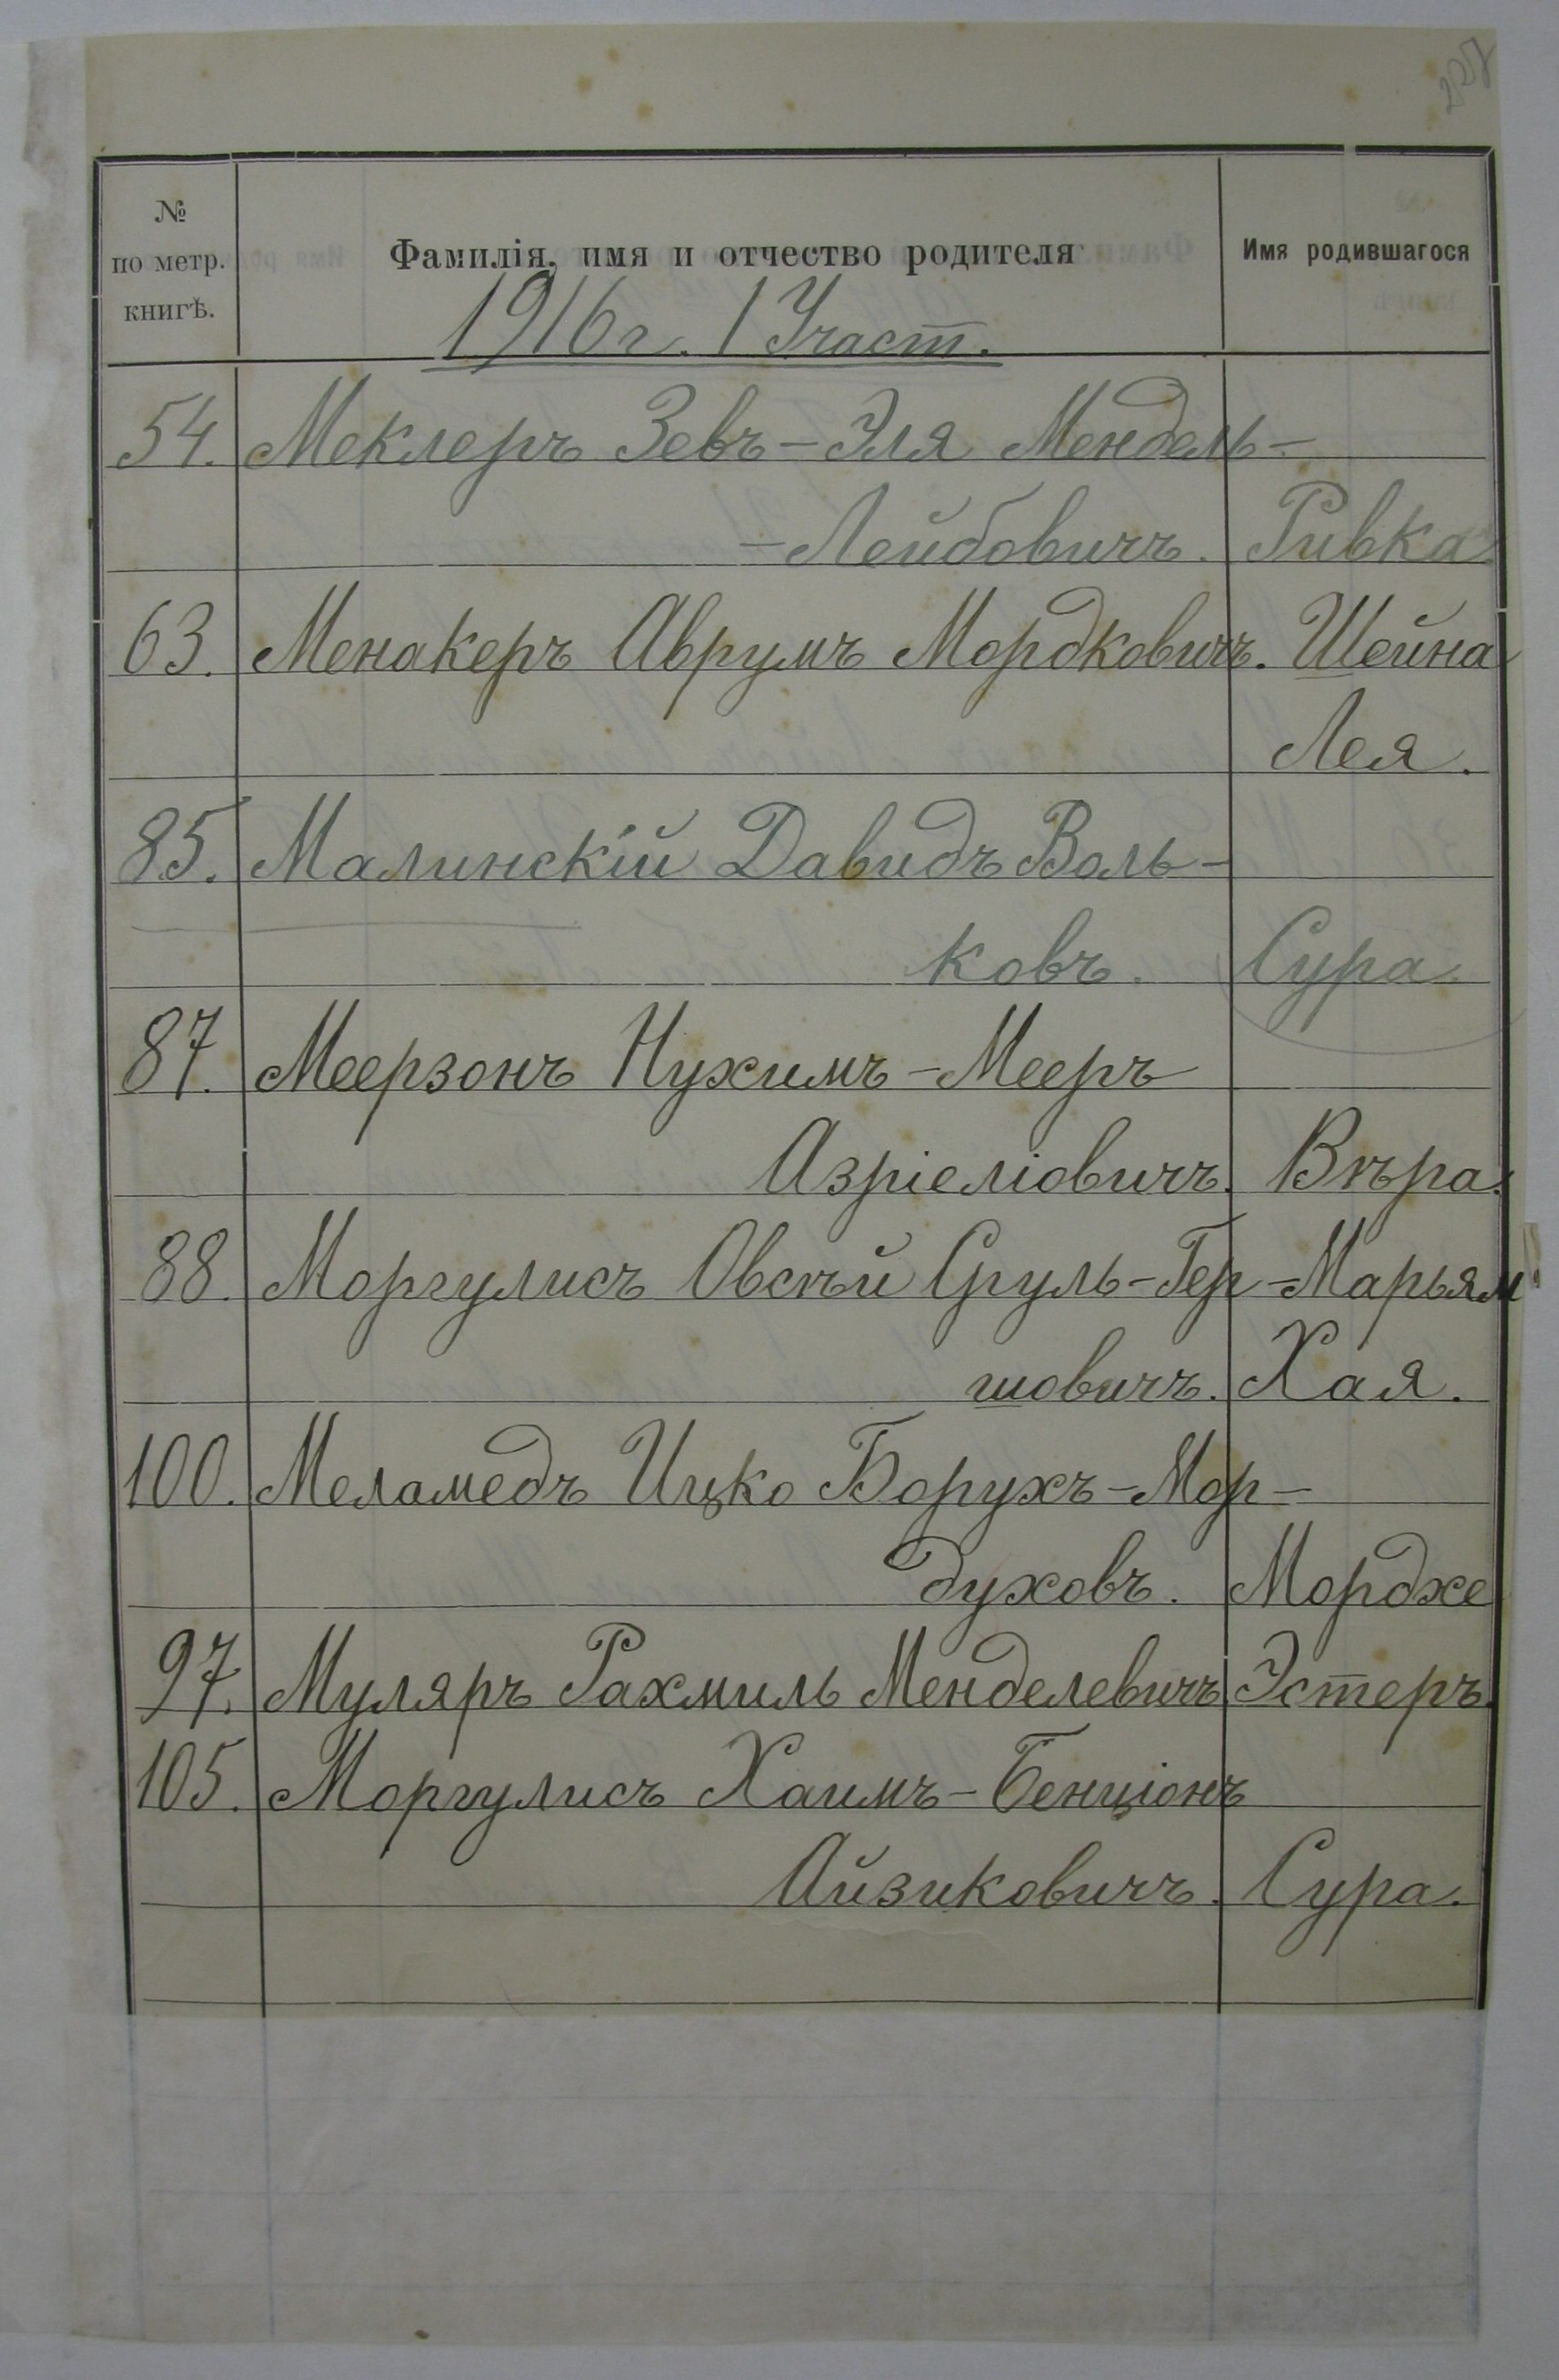 № по метр. книгѣ.
Фамилія, имя и отчество родителя
Имя родившагося
1916 г. 1 Участ.
54. Меклеръ Зевъ-Эля Мендель-
-Лейбовичъ. Ривка
63. Менакеръ Аврумъ Мордковичъ. Шейна
Лея.
85. Малинскій Давидъ Воль-
ковъ. Сура.
87. Меерзонъ Нухимъ-Мееръ
Азріеліовичъ. Вѣра.
88. Моргулисъ Овсѣй Сруль-Гер- Марьям
шовичъ. Хая.
100. Меламедъ Ицко Борухъ-Мор-
духовъ. Мордхе
97. Муляръ Рахмиль Менделевичъ Эстеръ.
105. Моргулисъ Хаимъ-Бенціонъ
Айзиковичъ. Сура.